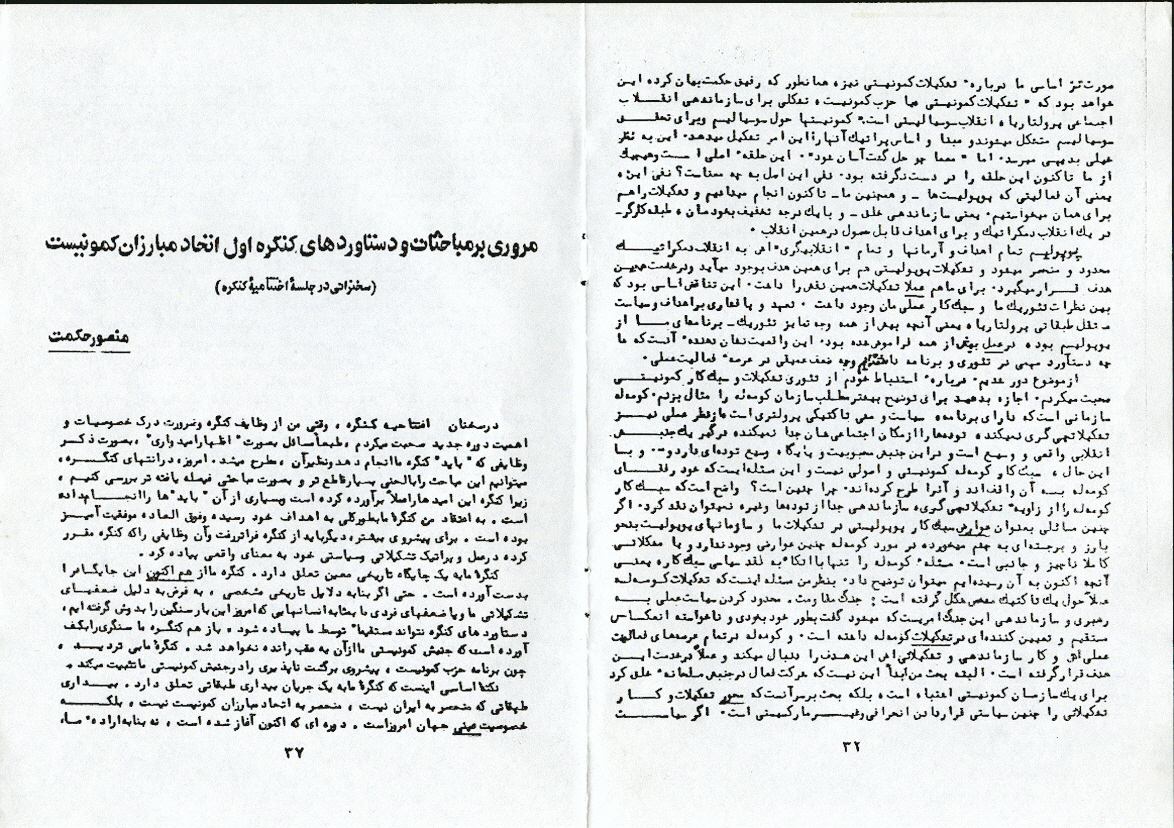 صورت تز اساسی ما درباره٬ تشکیلات کمونیستی نیزه همانطور که رفیق حکمت بیان کرده این
خواهد بود که " تشکیلات کمونیستی یا حزب کمونیست ، تشکلی برای سازماندهی انقـــلاب
اجتماعی پرولتاریا ، انقلاب سوسیالیستی است." کمونیستها حول سوسیالیسم وبرای تحقــق
سوسیالیسم متشکل میشوندو مبنا و اساس پراتیک آنهارا این امر تشکیل میدهد. این به نظر
خیلی بدیهی میرسد. اما " معما چو حل گشت آسان شود". این حلقه٬ اصلی است وهیچیک
از ما تاکنون این حلقه را در دست نگرفته بود. نفی این اصل به چه معناست؟ نفی این ،
یعنی آن فعالیتی که پوپولیست‌ها ـ و همچنین ما ـ تاکنون انجام میدادیم و تشکیلات راهم
برای همان میخواستیم. یعنی سازماندهی خلق ـ و با یک درجه تخفیف بخودمان ، طبقه کارگرـ
در یک انقلاب دمکراتیک و برای اهداف قابل حصول درهمین انقلاب .
پوپولیسم تمام اهداف و آرمانها و تمام " انقلابیگری"اش به انقلاب دمکراتیــــک
محدود و منحصر میشود و تشکیلات پوپولیستی هم برای همین هدف بوجود میآید ودرخدمت همین
هدف قــرار میگیرد. برای ما هم عملا تشکیلات همین نقش را داشت. این تناقض اساسی بود که
بین نظرات تئوریک ما و سبک کار عملی مان وجود داشت . تعهد و پافشاری براهداف وسیاست
مستقل طبقاتی پرولتاریا ، یعنی آنچه بیش از همه وجه تمایز تئوریک ـ برنامه‌ای مــا از
پوپولیسم بود ، در عمل بیش از همه فراموش شده بود. این واقعیت نشان دهنده٬ آنست که ما
چه دستاورد مهمی در تئوری و برنامه داشتیم وچه ضعف عمیقی در عرصه٬ فعالیت عملی .
ازموضوع دور شدیم. درباره٬ استنباط خودم از تئوری تشکیلات و سبک کار کمونیستـــی
صحبت میکردم. اجازه بدهید برای توضیح بیشتر مطلب سازمان کومه‌له را مثال بزنم. کومه‌له
سازمانی است که دارای برنامه ، سیاست و مشی تاکتیکی پرولتری است، از نظر عملی نیــز
تشکیلاتچی گری نمیکند ، توده‌ها را از مکان اجتماعی شان جدا نمیکند ، درگیر یک جنبــش
انقلابی واقعی و وسیع است و در این جنبش محبوبیت و پایگاه وسیع توده‌ای دارد و... و بــا
این حال ، سبک کار کومه‌له کمونیستی و اصولی نیست و این مسئله‌ایست که خود رفقــای
کومه‌له بـه آن واقف‌اند و آنرا طرح کرده‌اند. چرا چنین است؟ واضح است که سبک کار
کومه‌له را از زاویه٬ تشکیلاتچی گری ، سازماندهی جدا از توده‌ها وغیره نمیتوان نقد کرد. اگر
چنین مسائلی بعنوان عوارض سبک کار پوپولیستی در تشکیلات ما و سازمانهای پوپولیست بنحو
بارز و برجسته‌ای به چشم میخورد ، در مورد کومه‌له چنین عوارضی وجود ندارد و یا مشکلاتی
کاملا ناچیز و جانبی است. مسئله٬ کومه‌له را تنها با اتکاء به نقد سیاسی سبک کار ، یعنــی
آنچه اکنون به آن رسیده‌ایم میتوان توضیح داد. بنظر من مسئله اینست که تشکیلات کومه‌لـه
عملا حول یک تاکتیک مشخص شکل گرفته است : جنگ مقاومت. محدود کردن سیاست عملی بــه
رهبری و سازماندهی این جنگ امریست که میشود گفت بطور خود بخودی و ناخواسته انعکاس
مستقیم و تعیین کننده‌ای در تشکیلات کومه‌له داشته است . و کومه‌له در تمام عرصه‌های فعالیت
عملی‌اش و کار سازماندهی و تشکیلاتی‌اش این هدف را دنبال میکند و عملا در خدمت ایــن
هدف قرار گرفته است . البته بحث من ابدا این نیست که شرکت فعال در جنبش مسلحانه٬ خلق کرد
برای یک سازمان کمونیستی اشتباه است ، بلکه بحث برسر آنست که محور تشکیلات و کــار
تشکیلاتی را چنین سیاستی قراردادن انحرافی و غیــر مارکسیستی است. اگر سیاســـت
۳۲
مروری بر مباحثات و دستاوردهای کنگره اول اتحاد مبارزان کمونیست
(سخنرانی در جلسهٔ اختتامیهٔ کنگره)
منصور حکمت
درسخنان افتتاحیه کنگره ، وقتی من از وظایف کنگره وضرورت درک خصوصیات و
اهمیت دوره جدید صحبت میکردم ، طبعاً مسائل بصورت " اظهار امیدواری" ، بصورت ذکــر
وظایفی که "باید" کنگره ما انجام دهد ونظیرآن ، مطرح میشد . امروز ، در انتهای کنگـــره ،
میتوانیم این مباحث را با لحنی بسیار قاطع تر و بصورت مباحثی فیصله یافته تر بررسی کنیم ،
زیرا کنگره این امیدهارا عملاً برآورده کرده است وبسیاری از آن "باید" ها را انجــام داده
است . به اعتقاد من کنگرهٔ ما بطورکلی به اهداف خود رسیده وفوق العاده موفقیت آمیــز
بوده است . برای پیشروی بیشتر ، دیگر باید از کنگره فراتررفت وآن وظایفی را که کنگره مقرر
کرده درعمل و پراتیک تشکیلاتی وسیاستی خود به معنای واقعی پیاده کرد .
کنگرهٔ ما به یک جایگاه تاریخی معین تعلق دارد . کنگره ما از هم اکنون این جایگاه را
بدست آورده است . حتی اگر بنابه دلایل تاریخی مشخصی ، به فرض به دلیل ضعفهــای
تشکیلاتی ما ویا ضعفهای فردی ما بمثابه انسانهایی که امروز این بار سنگین را بدوش گرفته ایم ،
دستاورد های کنگره نتواند مستقیماً توسط ما پیــاده شود . باز هم کنگــره ما سنگری را بکف
آورده است که جنبش کمونیستی ما از آن به عقب رانده نخواهد شد . کنگرهٔ ما بی تردیــد ،
چون برنامه حزب کمونیست ، پیشروی برگشت ناپذیری را در جنبش کمونیستی ما تثبیت میکند .
نکتهٔ اساسی اینست که کنگرهٔ ما به یک جریان بیداری طبقاتی تعلق دارد . بیــداری
طبقاتی که منحصر به ایران نیست ، منحصر به اتحاد مبارزان کمونیست نیست ، بلکـــه
خصوصیت عینی جهان امروز است . دوره ای که اکنون آغاز شده است ، نه بنابه اراده٬ ما ،
۳۷